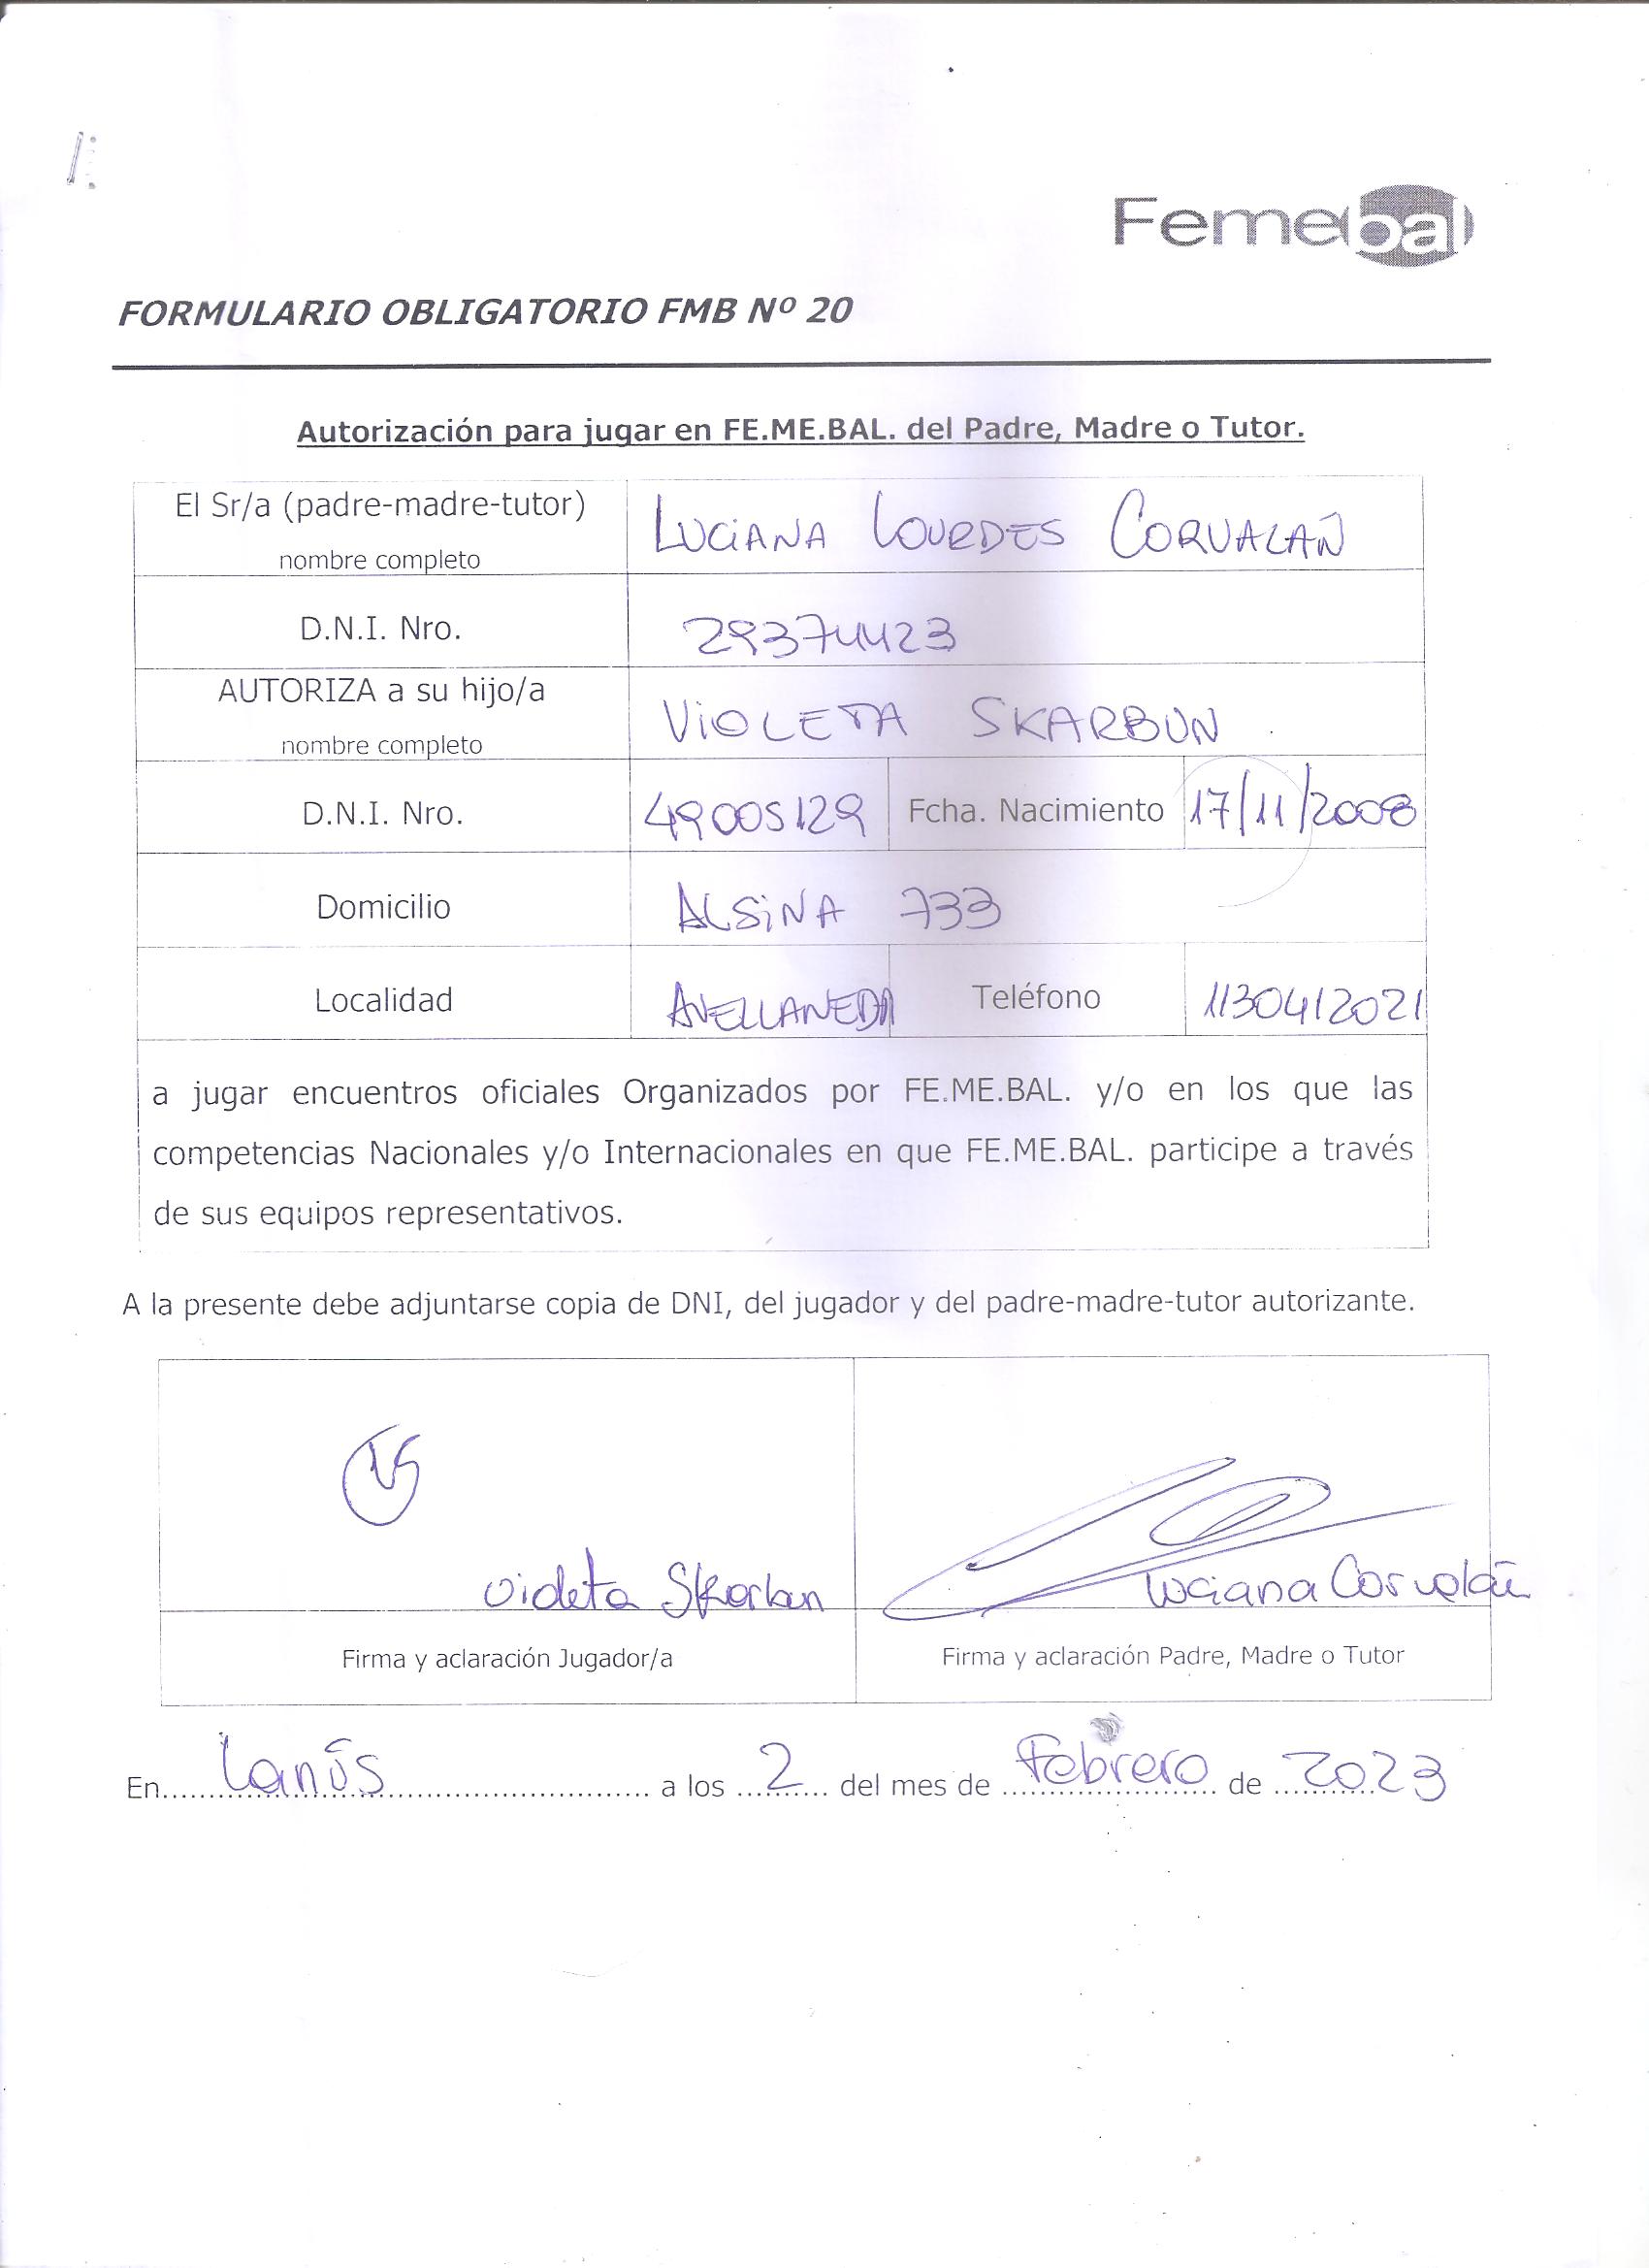 Femebal
FORMULARIO OBLIGATORIO FMB Nº 20
Autorización para jugar en FE.ME.BAL. del Padre, Madre o Tutor.
El Sr/a (padre-madre-tutor)
nombre completo
LUCIANA LOURDES CORVALAN
D.N.I. Nro.
29374423
AUTORIZA a su hijo/a
nombre completo
VIOLETA SKARBUN
D.N.I. Nro.
49005129
Fcha. Nacimiento
17/11/2008
Domicilio
ALSINA 733
Localidad
AVELLANEDA
Teléfono
1130412021
a jugar encuentros oficiales Organizados por FE.ME.BAL. y/o en los que las
competencias Nacionales y/o Internacionales en que FE.ME.BAL. participe a través
de sus equipos representativos.
A la presente debe adjuntarse copia de DNI, del jugador y del padre-madre-tutor autorizante.
VS
Violeta Skarbun
Luciana Corvalán
Firma y aclaración Jugador/a
Firma y aclaración Padre, Madre o Tutor
En Lanús a los 2 del mes de Febrero de 2023